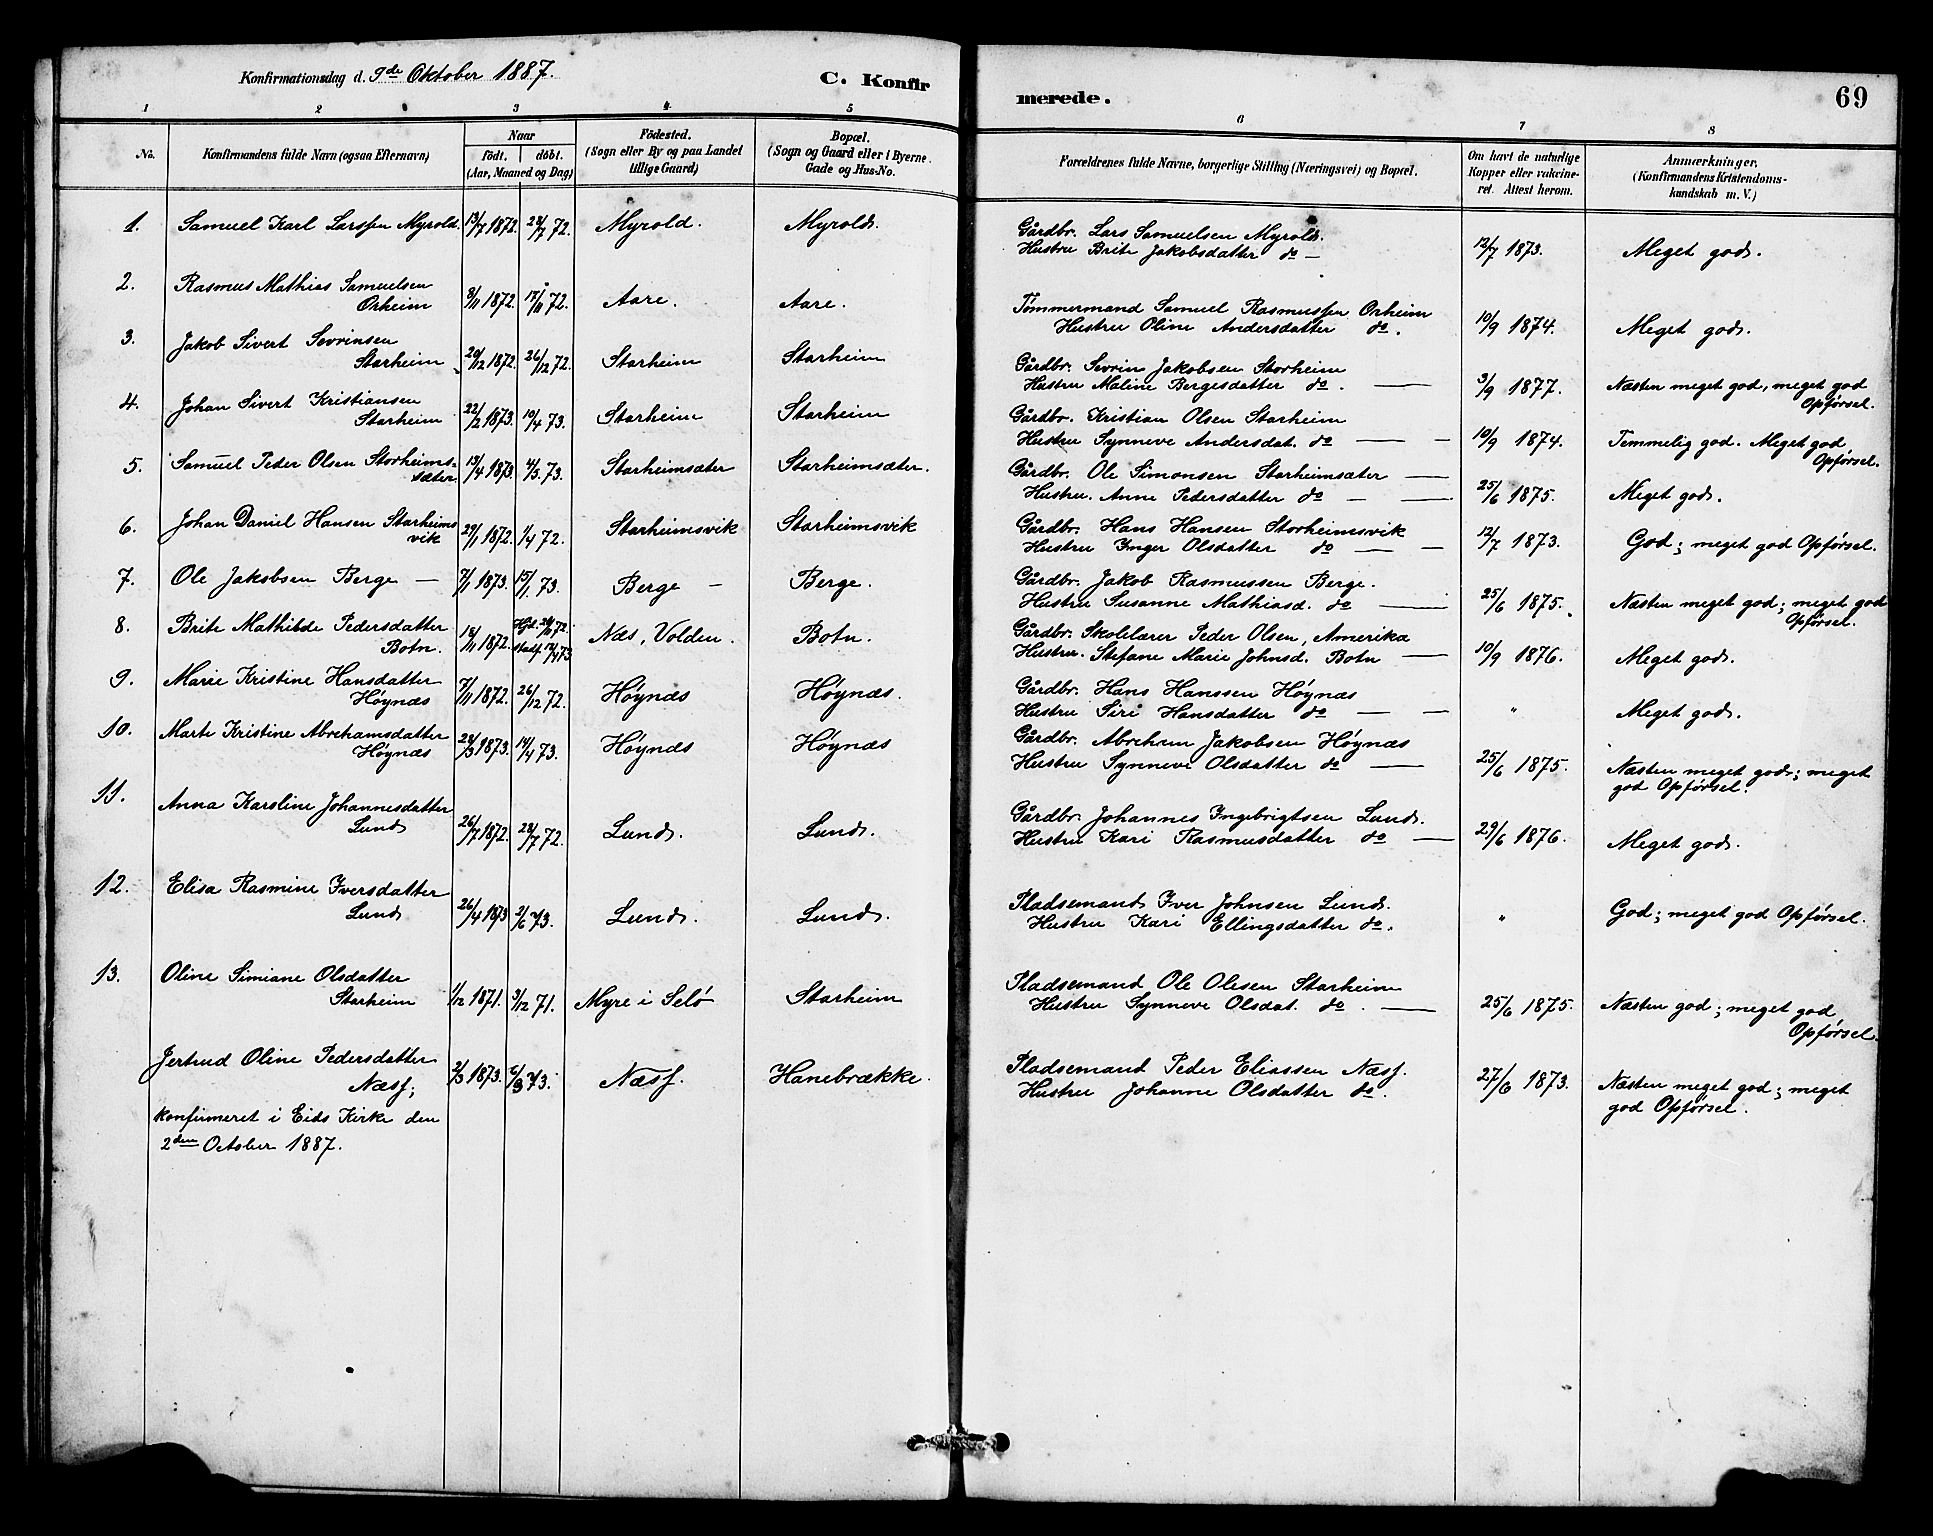 Konfirmationsdag d. 9de Oktober 1887.
C. Konfirmerede.
69
1 2 3 4 5 6 7 8
No.
Konfirmandens fulde Navn (ogsaa Efternavn)
Naar
födt. döbt.
(Aar, Maaned og Dag)
Födested.
(Sogn eller By og paa Landet
tillige Gaard)
Bopæl.
(Sogn og Gaard eller i Byerne
Gade og Hus-No.
Forældrenes fulde Navne, borgerlige Stilling (Næringsvei) og Bopæl.
Om havt de naturlige
Kopper eller vakcine-
ret. Attest herom.
Anmærkninger.
(Konfirmandens Kristendoms-
kundskab m. V.)
1. Samuel Karl Larssen Myrold. 13/7 1872. 28/7 72. Myrold. Myrold. Gårdbr. Lars Samuelsen Myrold.
Hustru Brite Jakobsdatter do — 12/7 1873. Meget god.
2. Rasmus Mathias Samuelsen
Orheim 3/11 1872. 17/11 72. Aare. Aare. Tømmermand Samuel Rasmussen Orheim
Hustru Oline Andersdatter do. 10/9 1874. Meget god.
3. Jakob Sivert Sevrinsen
Starheim 20/12 1872. 26/12 72. Starheim Starheim Gårdbr. Sevrin Jakobsen Storheim
Hustru Maline Bergesdatter do. — 3/9 1877. Næsten meget god, meget god
Opførsel.
4. Johan Sivert Kristiansen
Starheim 22/2 1873. 10/4 73. Starheim Starheim Gårdbr. Kristian Olsen Starheim
Hustru Synneve Andersdat. do — 10/9 1874. Temmelig god. Meget god
Opførsel.
5. Samuel Peder Olsen Storheims-
sæter. 13/4 1873. 4/5. 73. Starheimsæter Starheimsæter. Gårdbr. Ole Simonsen Starheimsæter —
Hustru. Anne Pedersdatter do — 25/6 1875. Meget god.
6. Johan Daniel Hansen Starheims
vik 29/1 1872. 1/4 72. Starheimsvik Starheimsvik Gårdbr. Hans Hansen Storheimsvik
Hustru Inger Olsdatter do — 12/7 1873. God; meget god Opførsel.
7. Ole Jakobsen Berge — 7/1 1873. 15/1 73. Berge — Berge. Gårdbr. Jakob Rasmussen Berge.
Hustru Susanne Mathiasd. do — 25/6 1875. Næsten meget god; meget god
Opførsel.
8. Brite Mathilde Pedersdatter
Botn. 18/11 1872. Hjd. 24/11 72.
Stadf. 14/4 73 Næs, Volden. Botn. Gårdbr. Skolelærer Peder Olsen, Amerika
Hustru. Stefane Marie Johnsd. Botn — 10/9 1876. Meget god.
9. Marie Kristine Hansdatter
Höynæs 7/11 1872. 26/12 72. Höynæs Höynæs. Gårdbr. Hans Hanssen Höynæs
Hustru Siri Hansdatter do — " Meget god.
10. Marte Kristine Abrehamsdatter
Höynæs 24/3 1873. 14/4 73. Höynæs Höynæs Gårdbr. Abreham Jakobsen Höynæs
Hustru Synneve Olsdatter do — 25/6 1875. Næsten meget god; meget
god Opførsel.
11. Anna Karoline Johannesdatter
Lund 26/7 1872. 28/7 72. Lund. Lund. Gårdbr. Johannes Ingebrigtsen Lund.
Hustru Kari Rasmusdatter do — 29/6 1876. Meget god.
12. Elisa Rasmine Iversdatter
Lund 26/4 1873 2/6 73. Lund. Lund. Pladsemand Iver Johnsen Lund.
Hustru Kari Ellingsdatter do. " God; meget god Opførsel.
13. Oline Simiane Olsdatter
Starheim 1/12 1871. 3/12 71. Myre i Selö Starheim Pladsemand Ole Olesen Starheim
Hustru Synneve Olsdat. do. — 25/6 1875. Næsten god; meget god
Opførsel.
Jertrud Oline Pedersdatter
Næsf; 2/3 1873. 6/3 73. Næsf. Hanebrække. Pladsemand Peder Eliassen Næsf.
Hustru Johanne Olsdatter do. 27/6 1873. Næsten meget god; meget
god Opførsel.
konfirmeret i Eids Kirke den
2den October 1887.